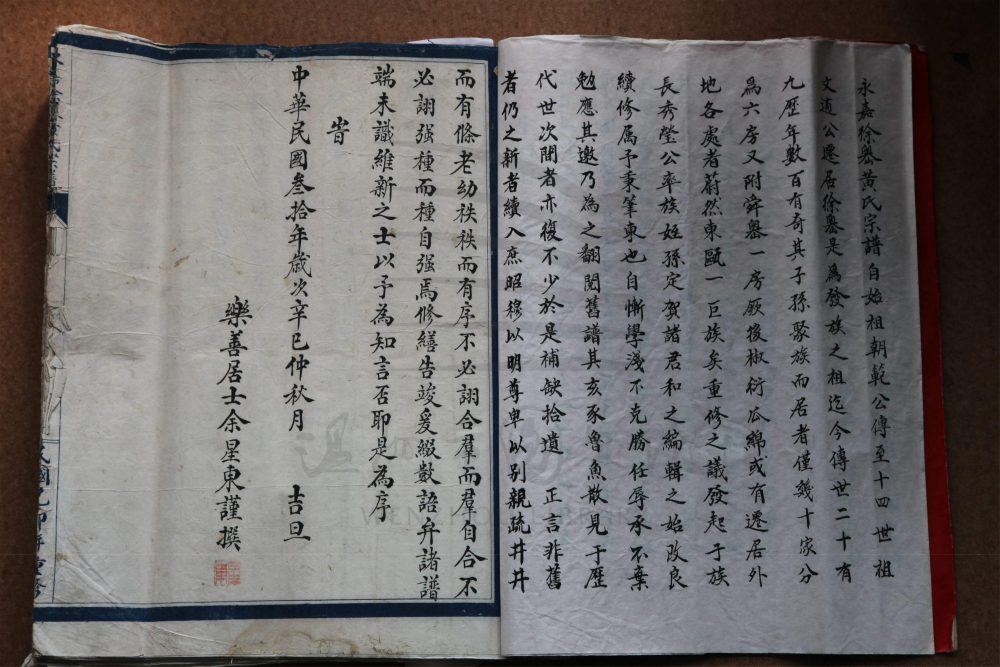 永嘉徐嶴黄氏宗譜自始祖朝範公傳至十四世祖
文道公遷居徐嶴是爲發族之祖迄今傳世二十有
九歷年數百有奇其子孫聚族而居者僅幾十家分
爲六房又附舜嶴一房厥後椒衍瓜綿或有遷居外
地各處者蔚然東甌一巨族矣重修之議發起于族
長秀瑩公率族姪孫定賀諸君和之編輯之始改良
續修属予秉筆東也自慚學淺不克勝任辱承不棄
勉應其邀乃為之翻閲舊譜其亥豕魯魚散見于歷
代世次間者亦復不少於是補缺拾遺 正言非舊
者仍之新者續入庶昭穆以明尊卑以别親疏井井
而有條老幼秩秩而有序不必詡合羣而羣自合不
必詡强種而種自强焉修繕告竣爰綴數語弁諸譜
端未識維新之士以予為知言否耶是為序
旹
中華民國叁拾年歲次辛巳仲秋月 吉旦
樂善居士余星東謹撰